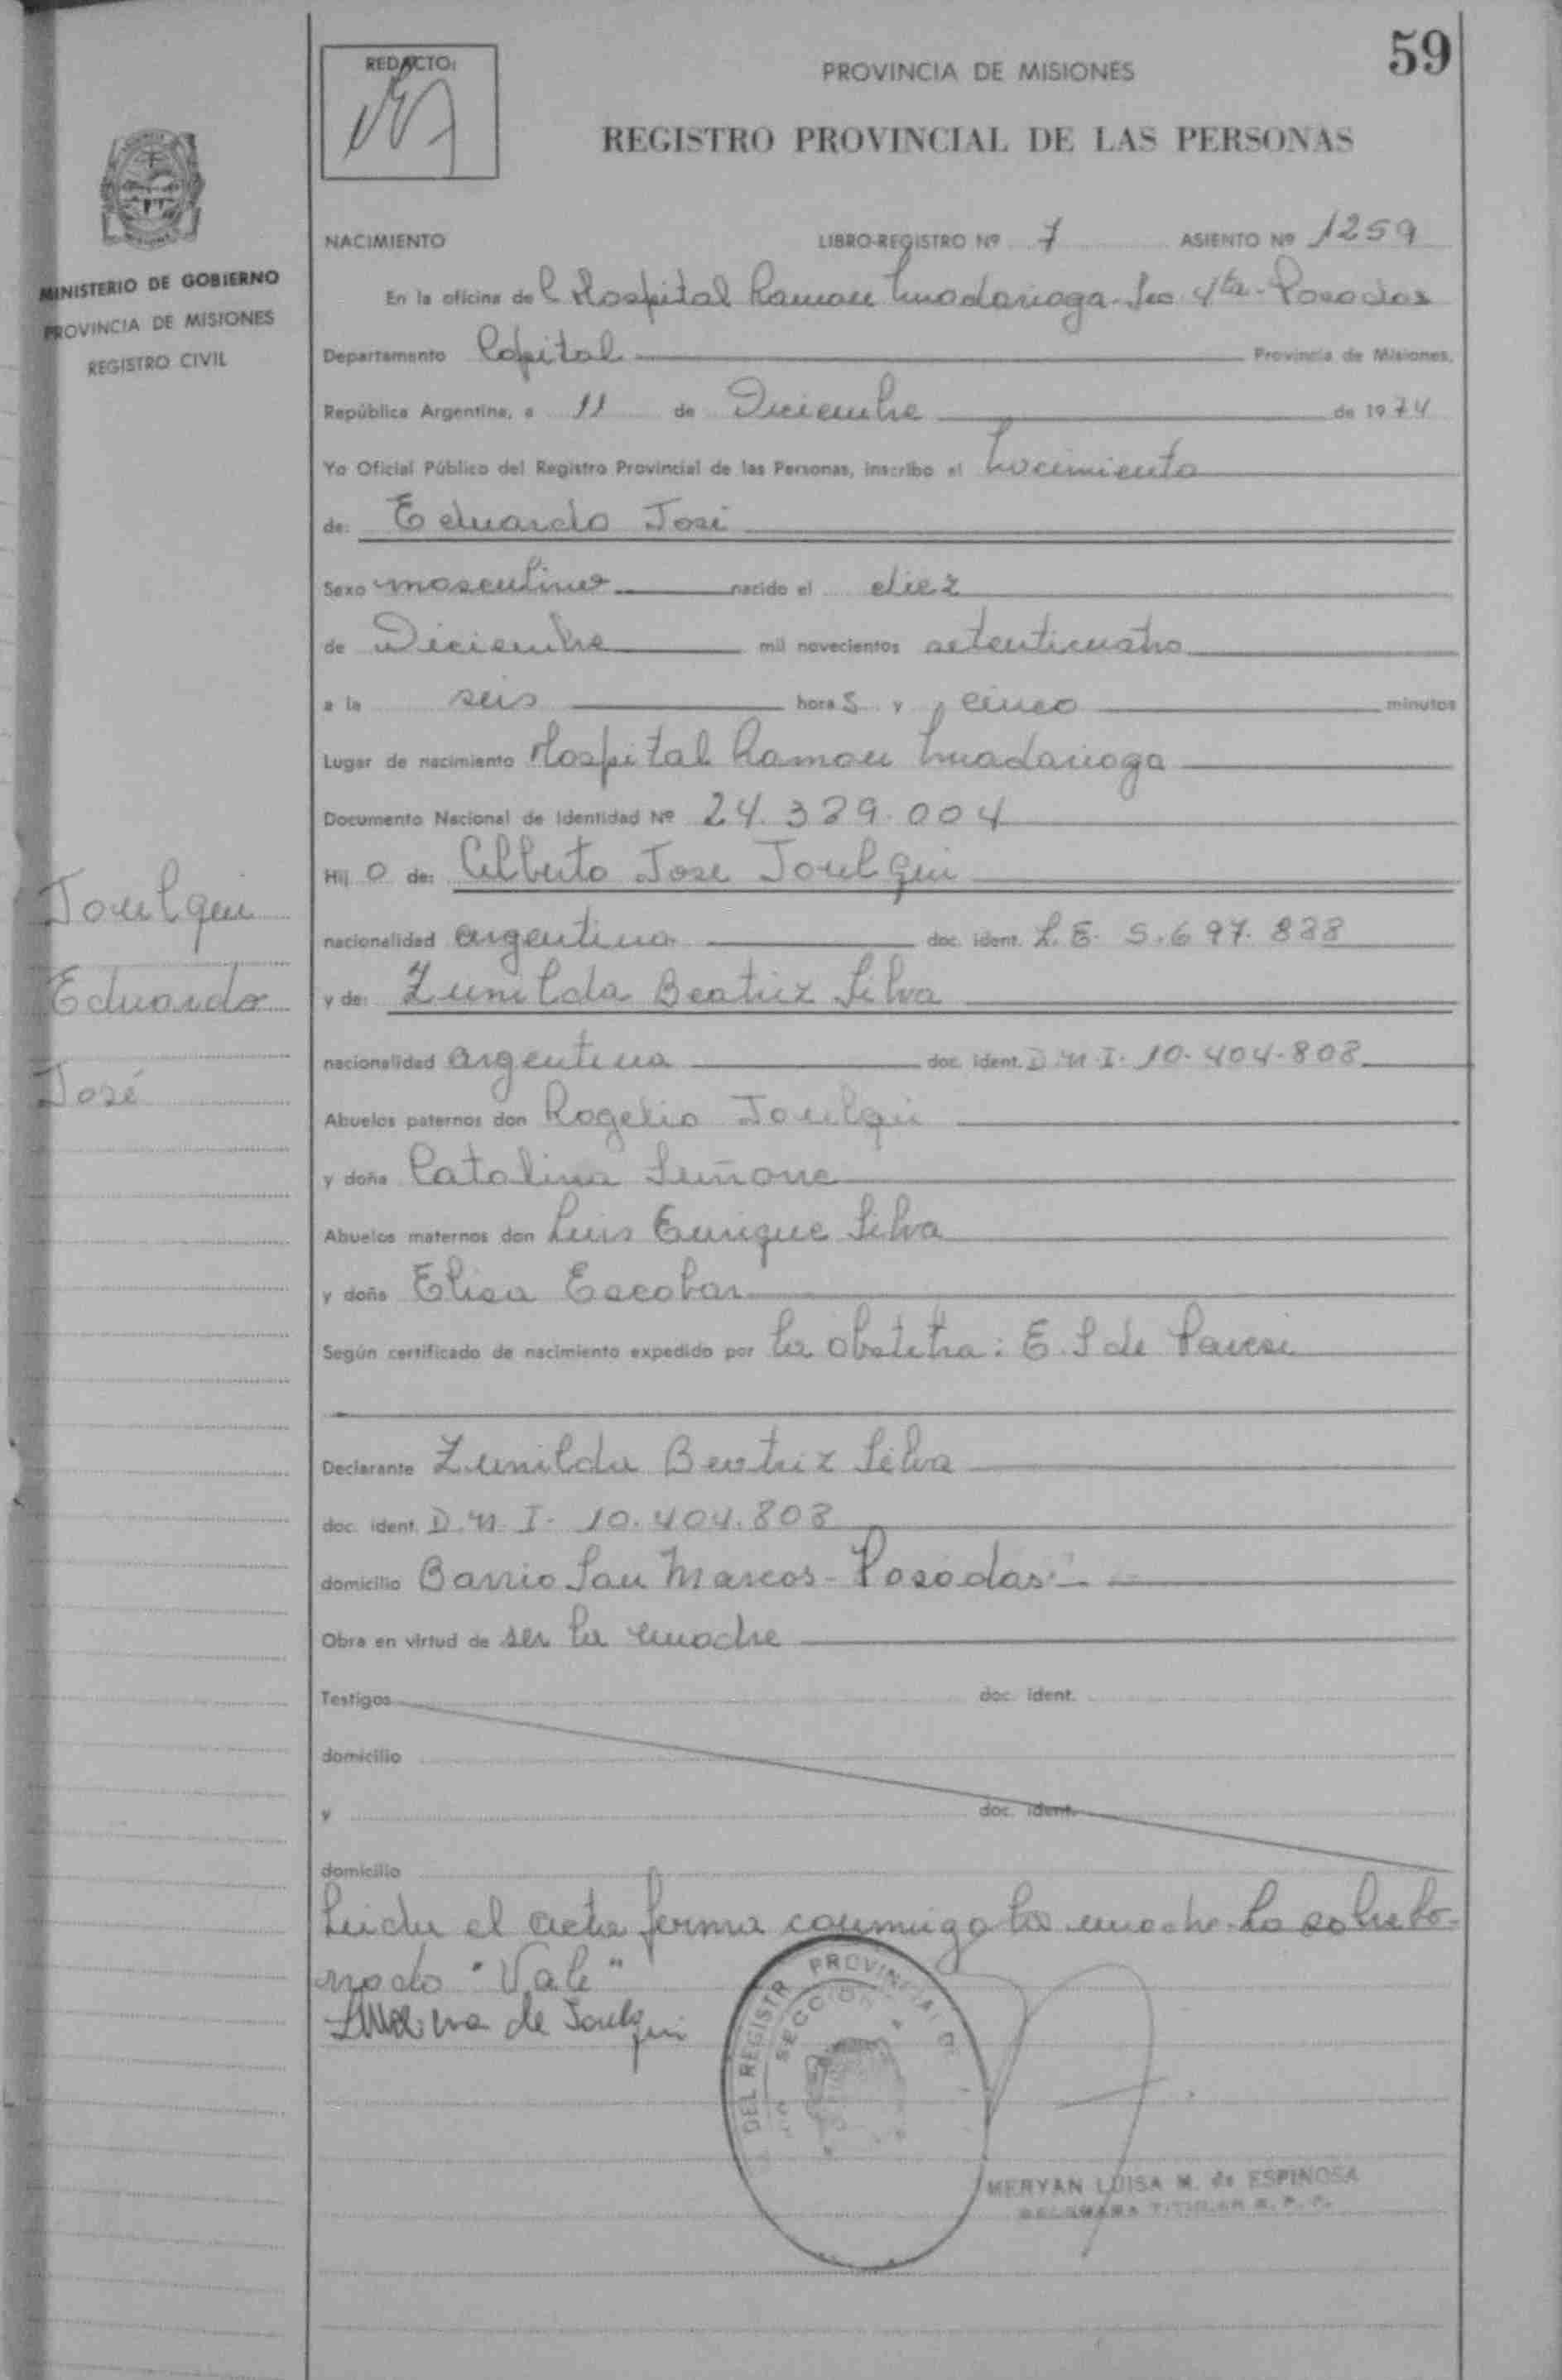 59
REDACTO:
PROVINCIA DE MISIONES
REGISTRO PROVINCIAL DE LAS PERSONAS
MINISTERIO DE GOBIERNO
PROVINCIA DE MISIONES
REGISTRO CIVIL
NACIMIENTO LIBRO-REGISTRO Nº 7 ASIENTO Nº 1259
En la oficina del Hospital Ramon Madariaga - Sec 4ta - Posadas
Departamento Capital Provincia de Misiones,
República Argentina, a 11 de Diciembre de 1974
Yo Oficial Público del Registro Provincial de las Personas, inscribo el Nacimiento
de: Eduardo José
Sexo masculino nacido el diez
de Diciembre mil novecientos setenticuatro
a la seis horas y cinco minutos
Lugar de nacimiento Hospital Ramon Madariaga
Documento Nacional de Identidad Nº 24.329.004
Hijo de: Alberto Jose Joulqui
nacionalidad argentina doc. ident. L.E. 5.697.828
y de: Zunilda Beatriz Silva
nacionalidad argentina doc. ident. D.N.I. 10.404.808
Abuelos paternos don Rogelio Joulqui
y doña Catalina
Abuelos maternos don Luis Enrique Silva
y doña Elisa Escobar
Según certificado de nacimiento expedido por la obstetra: E. S de
Declarante Zunilda Beatriz Silva
doc. ident. D.N.I. 10.404.808
domicilio Barrio San Marcos - Posadas
Obra en virtud de ser la madre
Testigos doc. ident.
domicilio
y doc. ident.
domicilio
Leida el acta firma conmigo la madre. Lo sobrebo-
rrado "Vale"
de Joulqui
Joulqui
Eduardo
José
DEL REGISTR PROVINCIAL D
SECCION
MERYAN LUISA M. de ESPINOSA
DELEGADA TITULAR R. P. P.